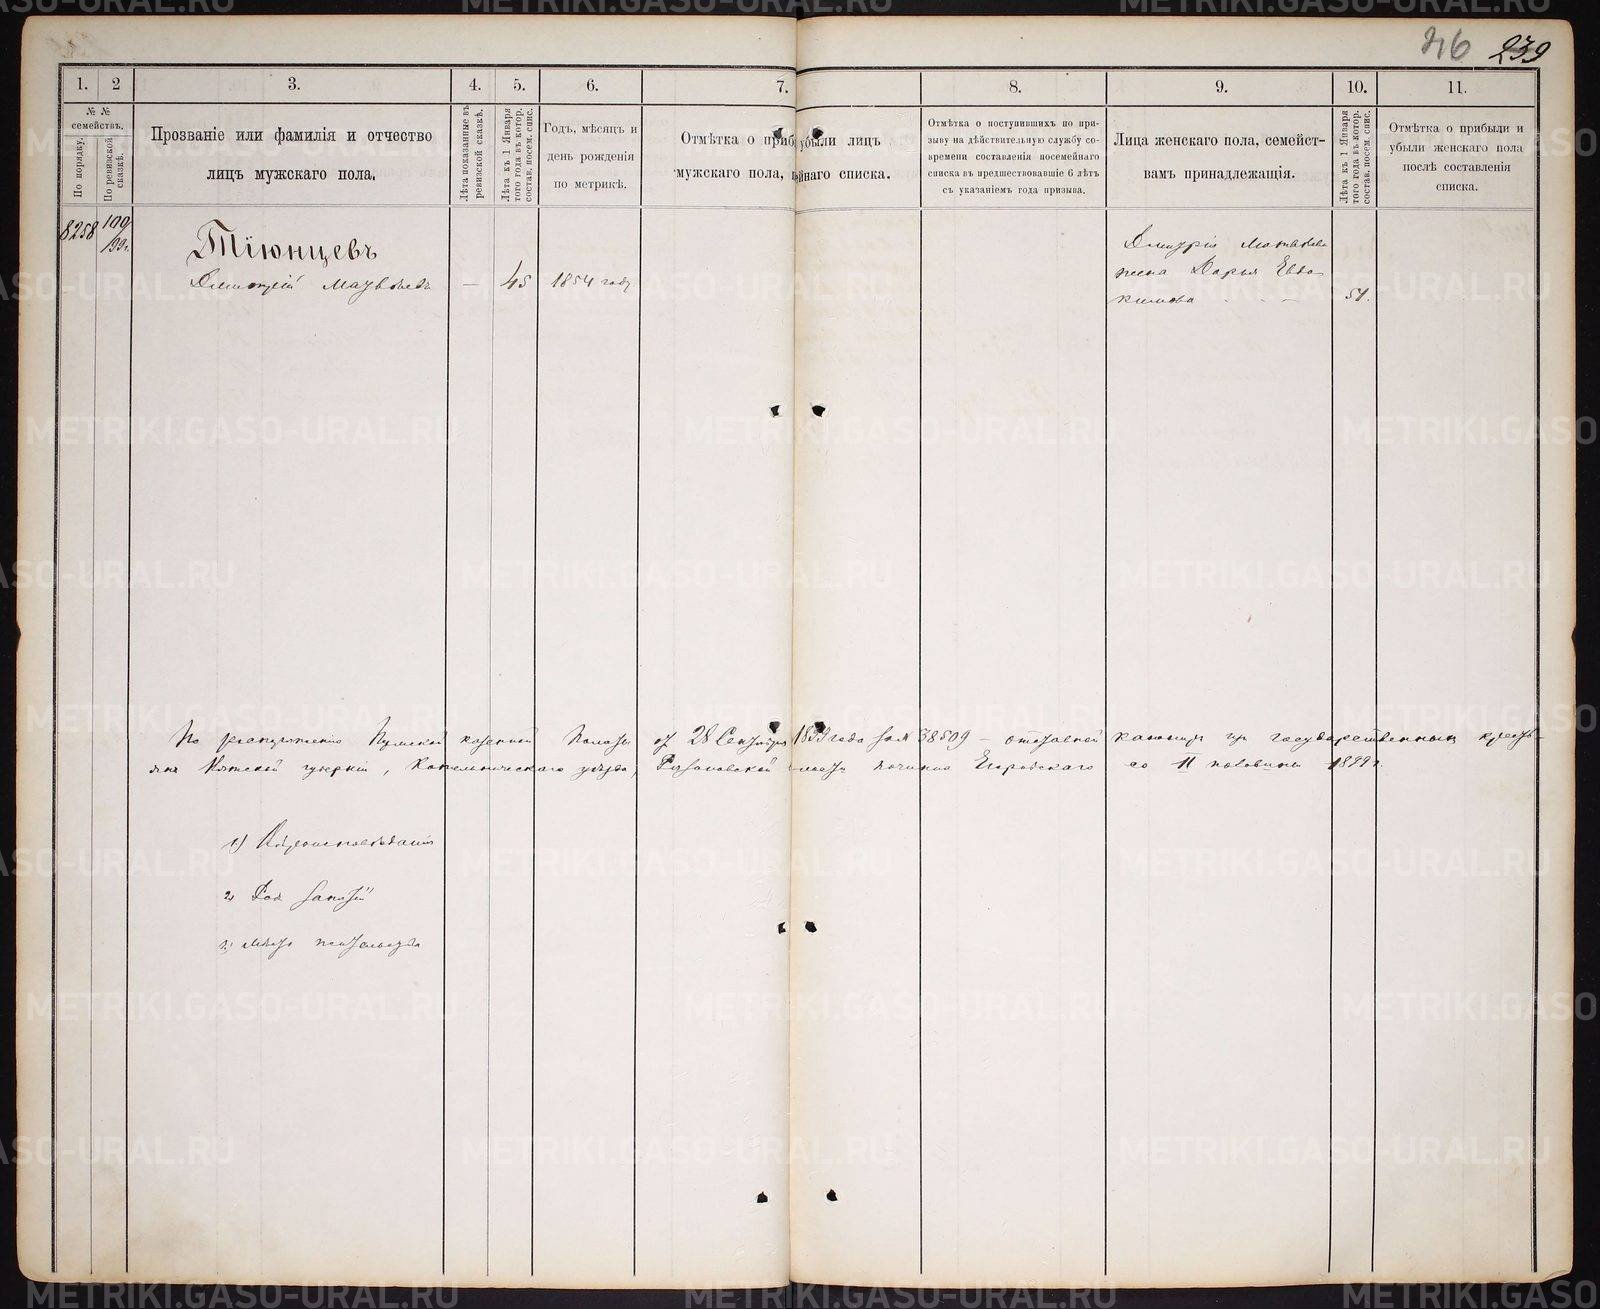 46 239
1. 2 3. 4. 5. 6. 7. 8. 9. 10. 11.
№ №
семействъ.
По порядку.
По ревизской сказкѣ.
Прозваніе или фамилія и отчество
лицъ мужскаго пола.
Лѣта показанные въ
ревизской сказкѣ.
Лѣта къ 1 Января
того года въ котор.
состав. посем. спис.
Годъ, мѣсяцъ и
день рожденія
по метрикѣ.
Отмѣтка о приб убыли лицъ
мужскаго пола, ейнаго списка.
Отмѣтка о поступившихъ по при-
зыву на дѣйствительную службу со-
времени составленія посемейнаго
списка въ предшествовавшіе 6 лѣтъ
съ указаніемъ года призыва.
Лица женскаго пола, семейст-
вамъ принадлежащія.
Лѣта къ 1 Января
того года въ котор.
состав. посем. спис.
Отмѣтка о прибыли и
убыли женскаго пола
послѣ составленія
списка.
8258 109/199.
Тіюнцевъ
Дмитрій Матвѣевъ — 45 1854 году
Дмитрія Матвѣева
жена Дарья Евдо-
кимова — 51.
По распоряженію Пермской казенной Палаты от 28 Сентября 1899 года за № 38509 — из государственныхъ кресть-
янъ Вятской губерніи, Котельническаго уѣзда, починка Егоровскаго со II половины 1899 г.
1) Вѣроисповѣданіе
2) Род занятій
3) Мѣсто жительства
METRIKI.GASO-URAL.RU